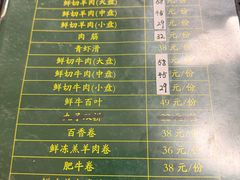 鲜切羊肉(大盘) 68
鲜切羊肉(中盘) 48 元/份
鲜切羊肉(小盘) 29 元/份
肉筋 32 元/份
青虾滑 38元/份
鲜切牛肉(大盘) 68 元/份
鲜切牛肉(中盘) 45 元/份
鲜切牛肉(小盘) 29 元/份
鲜牛百叶 49 元/份
元/份
百香卷 38 元/份
鲜冻羔羊肉卷 36 元/份
肥牛卷 38 元/份